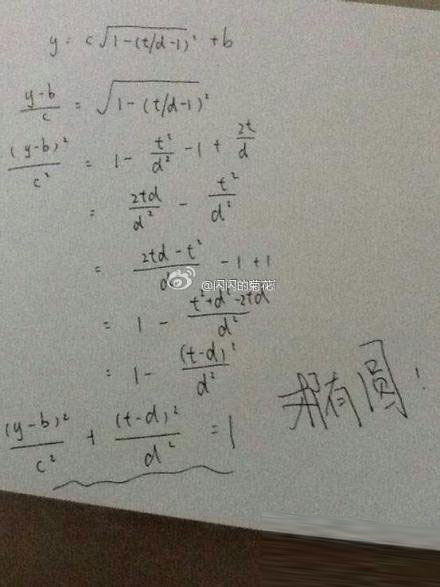 y = c√1-(t/d-1)² +b
y-b/c = √1-(t/d-1)²
(y-b)²/c² = 1 - t²/d² - 1 + 2t/d
= 2td/d² - t²/d²
= 2td-t²/d² -1+1
@闪闪的菊花
= 1 - t²+d²-2td/d²
= 1- (t-d)²/d²
(y-b)²/c² + (t-d)²/d² = 1
有圆!